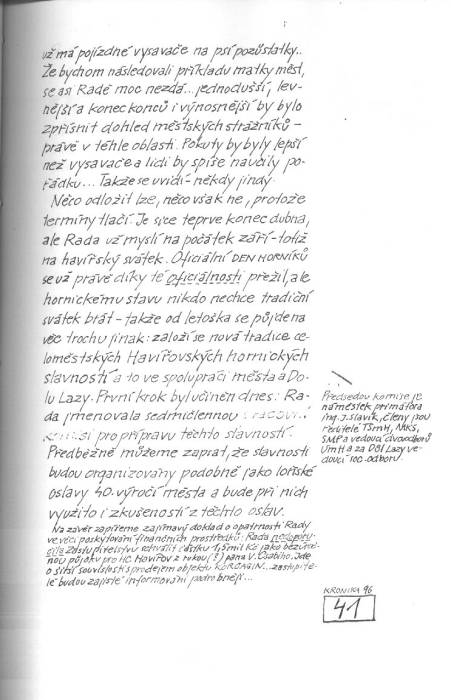 už má pojízdné vysavače na psí pozůstatky..
Že bychom následovali příkladu matky měst,
se asi Radě moc nezdá... jednodušší, lev-
nější a konec konců i výnosnější by bylo
zpřísnit dohled městských strážníků -
právě v téhle oblasti. Pokuty by byly lepší
než vysavače a lidi by spíše naučily po-
řádku... Takže se uvidí - někdy jindy.
Něco odložit lze, něco však ne, protože
termíny tlačí. Je sice teprve konec dubna,
ale Rada už myslí na počátek září - totiž
na havířský svátek. Oficiální DEN HORNÍKŮ
se už právě díky té oficiálnosti přežil, ale
hornickému stavu nikdo nechce tradiční
svátek brát - takže od letoška se půjde na
věc trochu jinak: založí se nová tradice ce-
loměstských Havířovských hornických
slavností a to ve spolupráci města a Do-
lu Lazy. První krok byl učiněn dnes: Ra-
da jmenovala sedmičlennou pracovní
komisi pro přípravu těchto slavností.
Předběžně můžeme zapsat, že slavnosti
budou organizovány podobně jako loňské
oslavy 40. výročí města a bude při nich
využito i zkušeností z těchto oslav.
Na závěr zapíšeme zajímavý doklad o opatrnosti Rady
ve věci poskytování finančních prostředků: Rada nedoporu-
čila Zastupitelstvu schválit částku 1,5 mil Kč jako bezúroč-
nou půjčku pro HC Havířov z rukou (?) pana V. Osabího. Jde
o širší souvislosti s prodejem objektu KORCAGIN... zastupite-
lé budou zajisté informováni podrobněji...
Předsedou komise je
náměstek primátora
ing. J. Slavík, členy jsou
ředitelé TSMH, MKS,
SMP a vedoucí dvou odborů
ÚMH a za Důl Lazy ve-
doucí soc. odboru.
KRONIKA 96
41